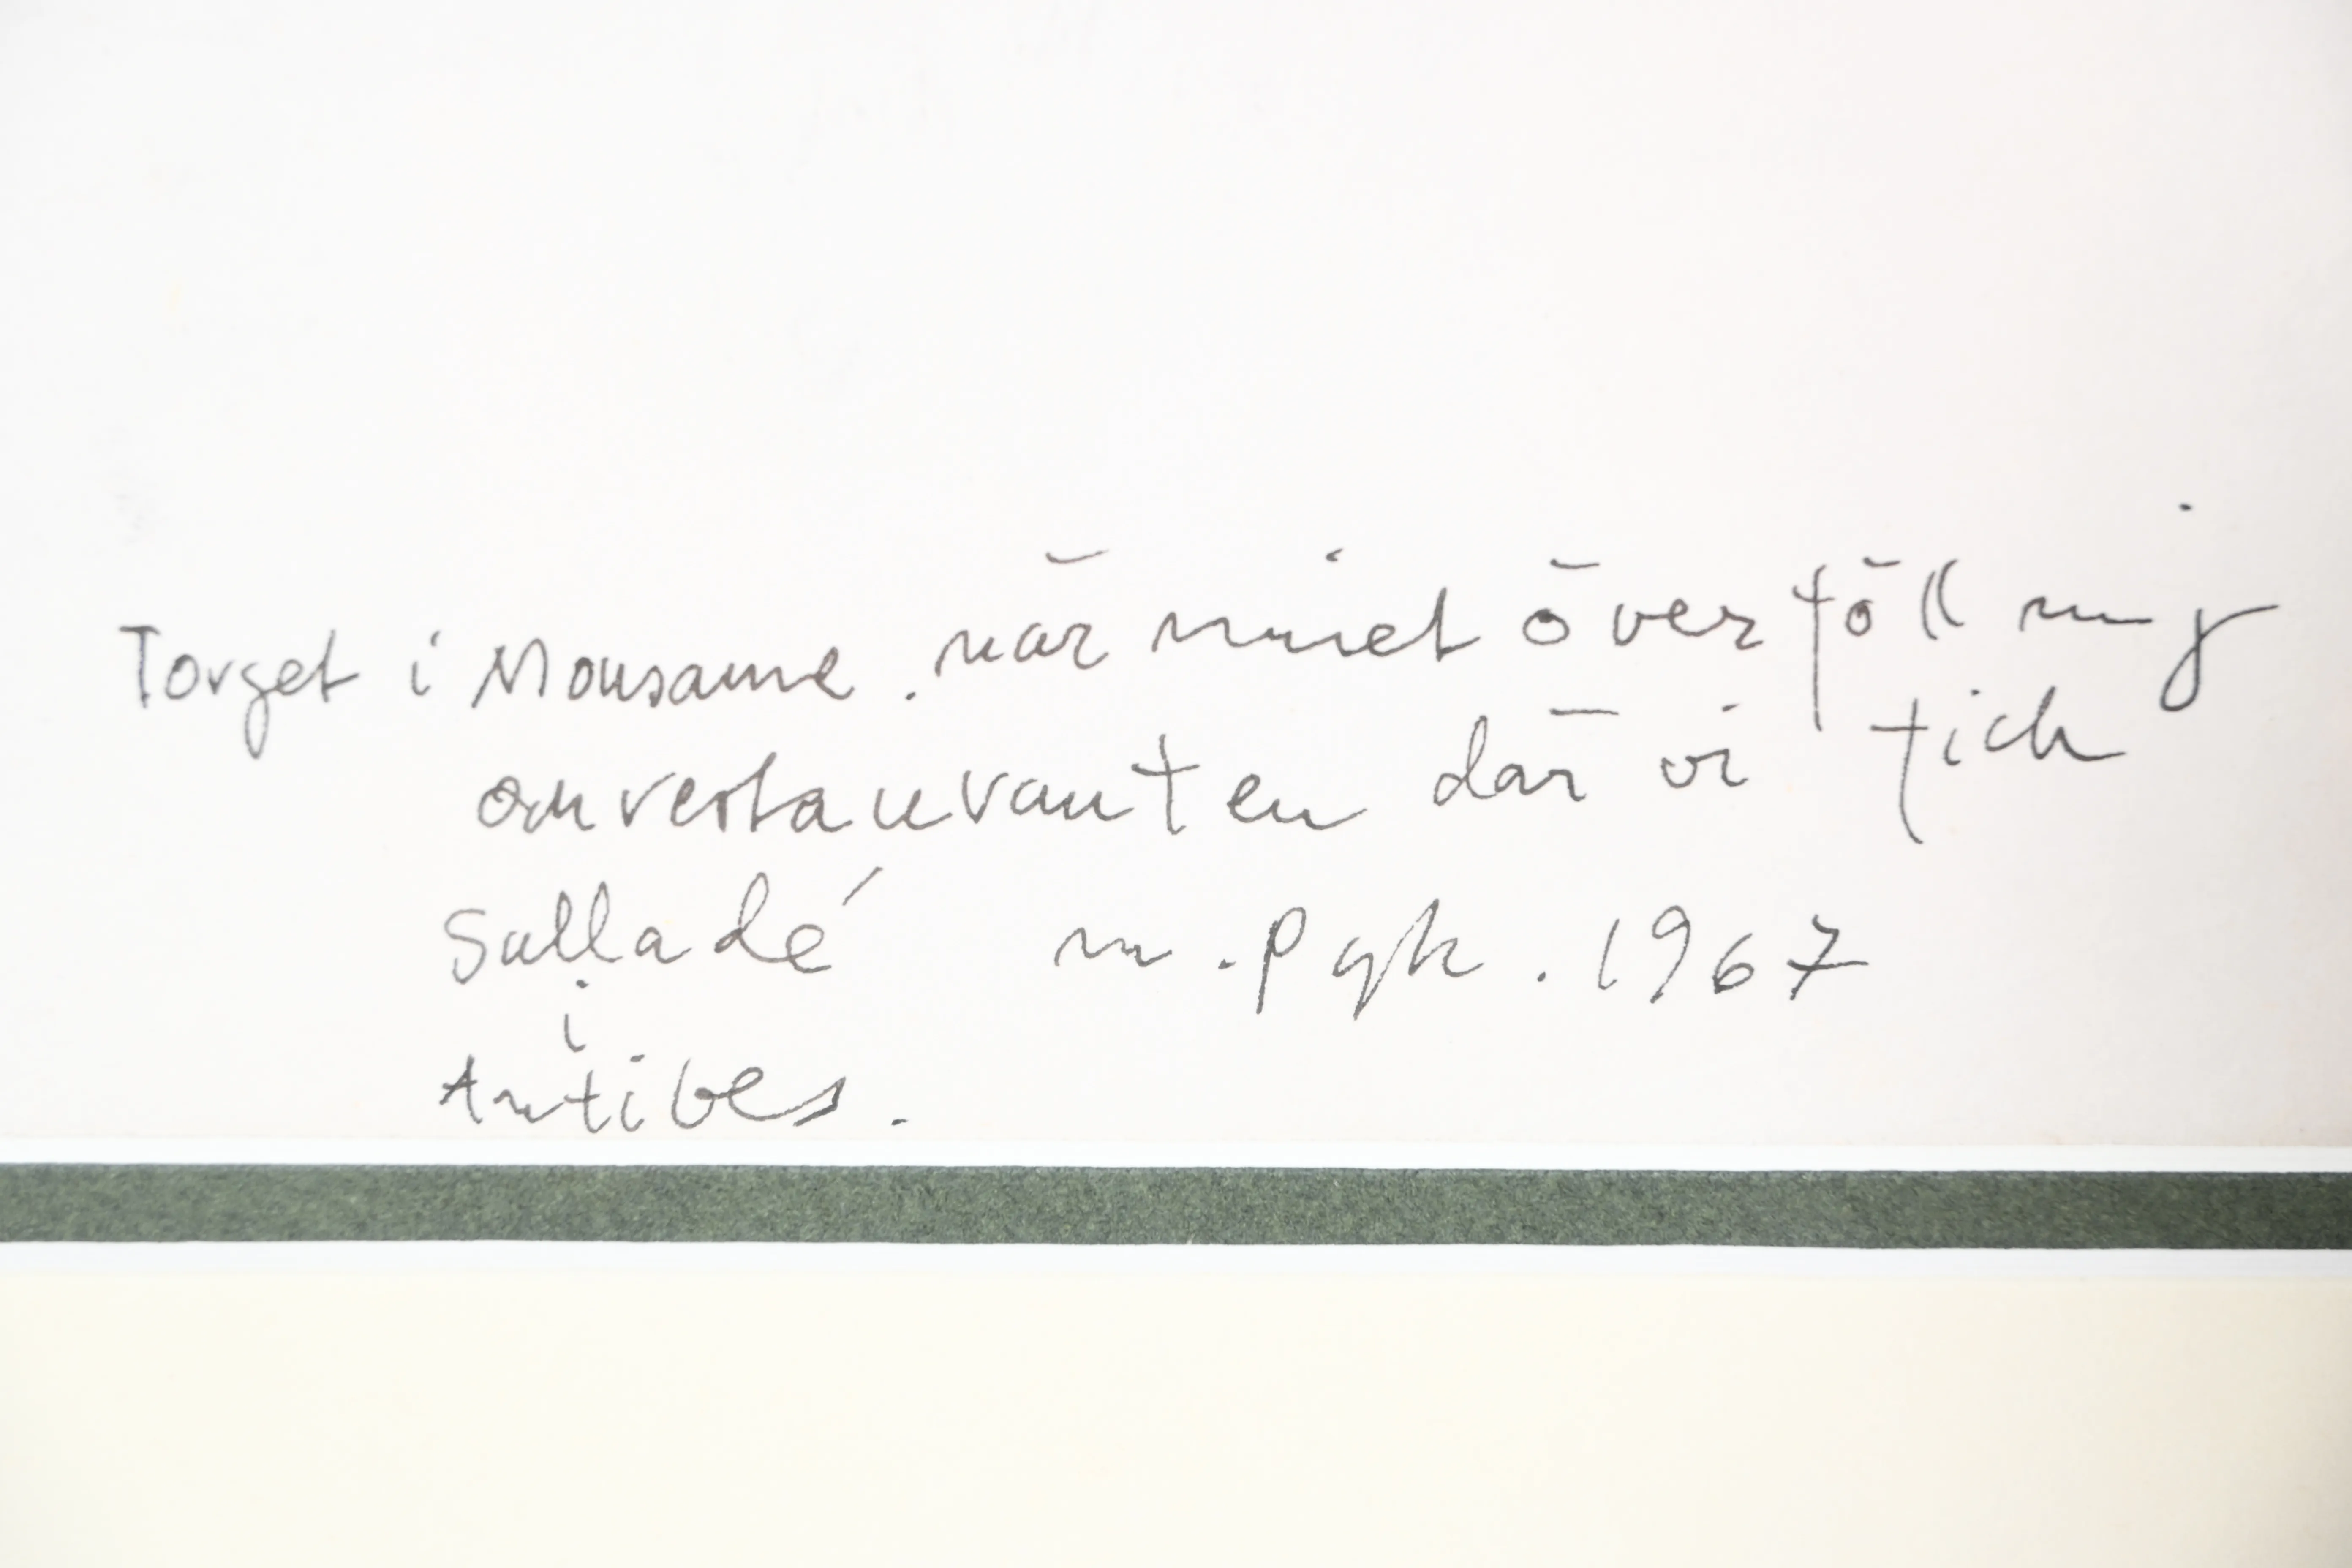 Torget i Mousame . när minet överföll mig
om restauranten där vi fick
Salladé m. P gk . 1967
i
Antibes .